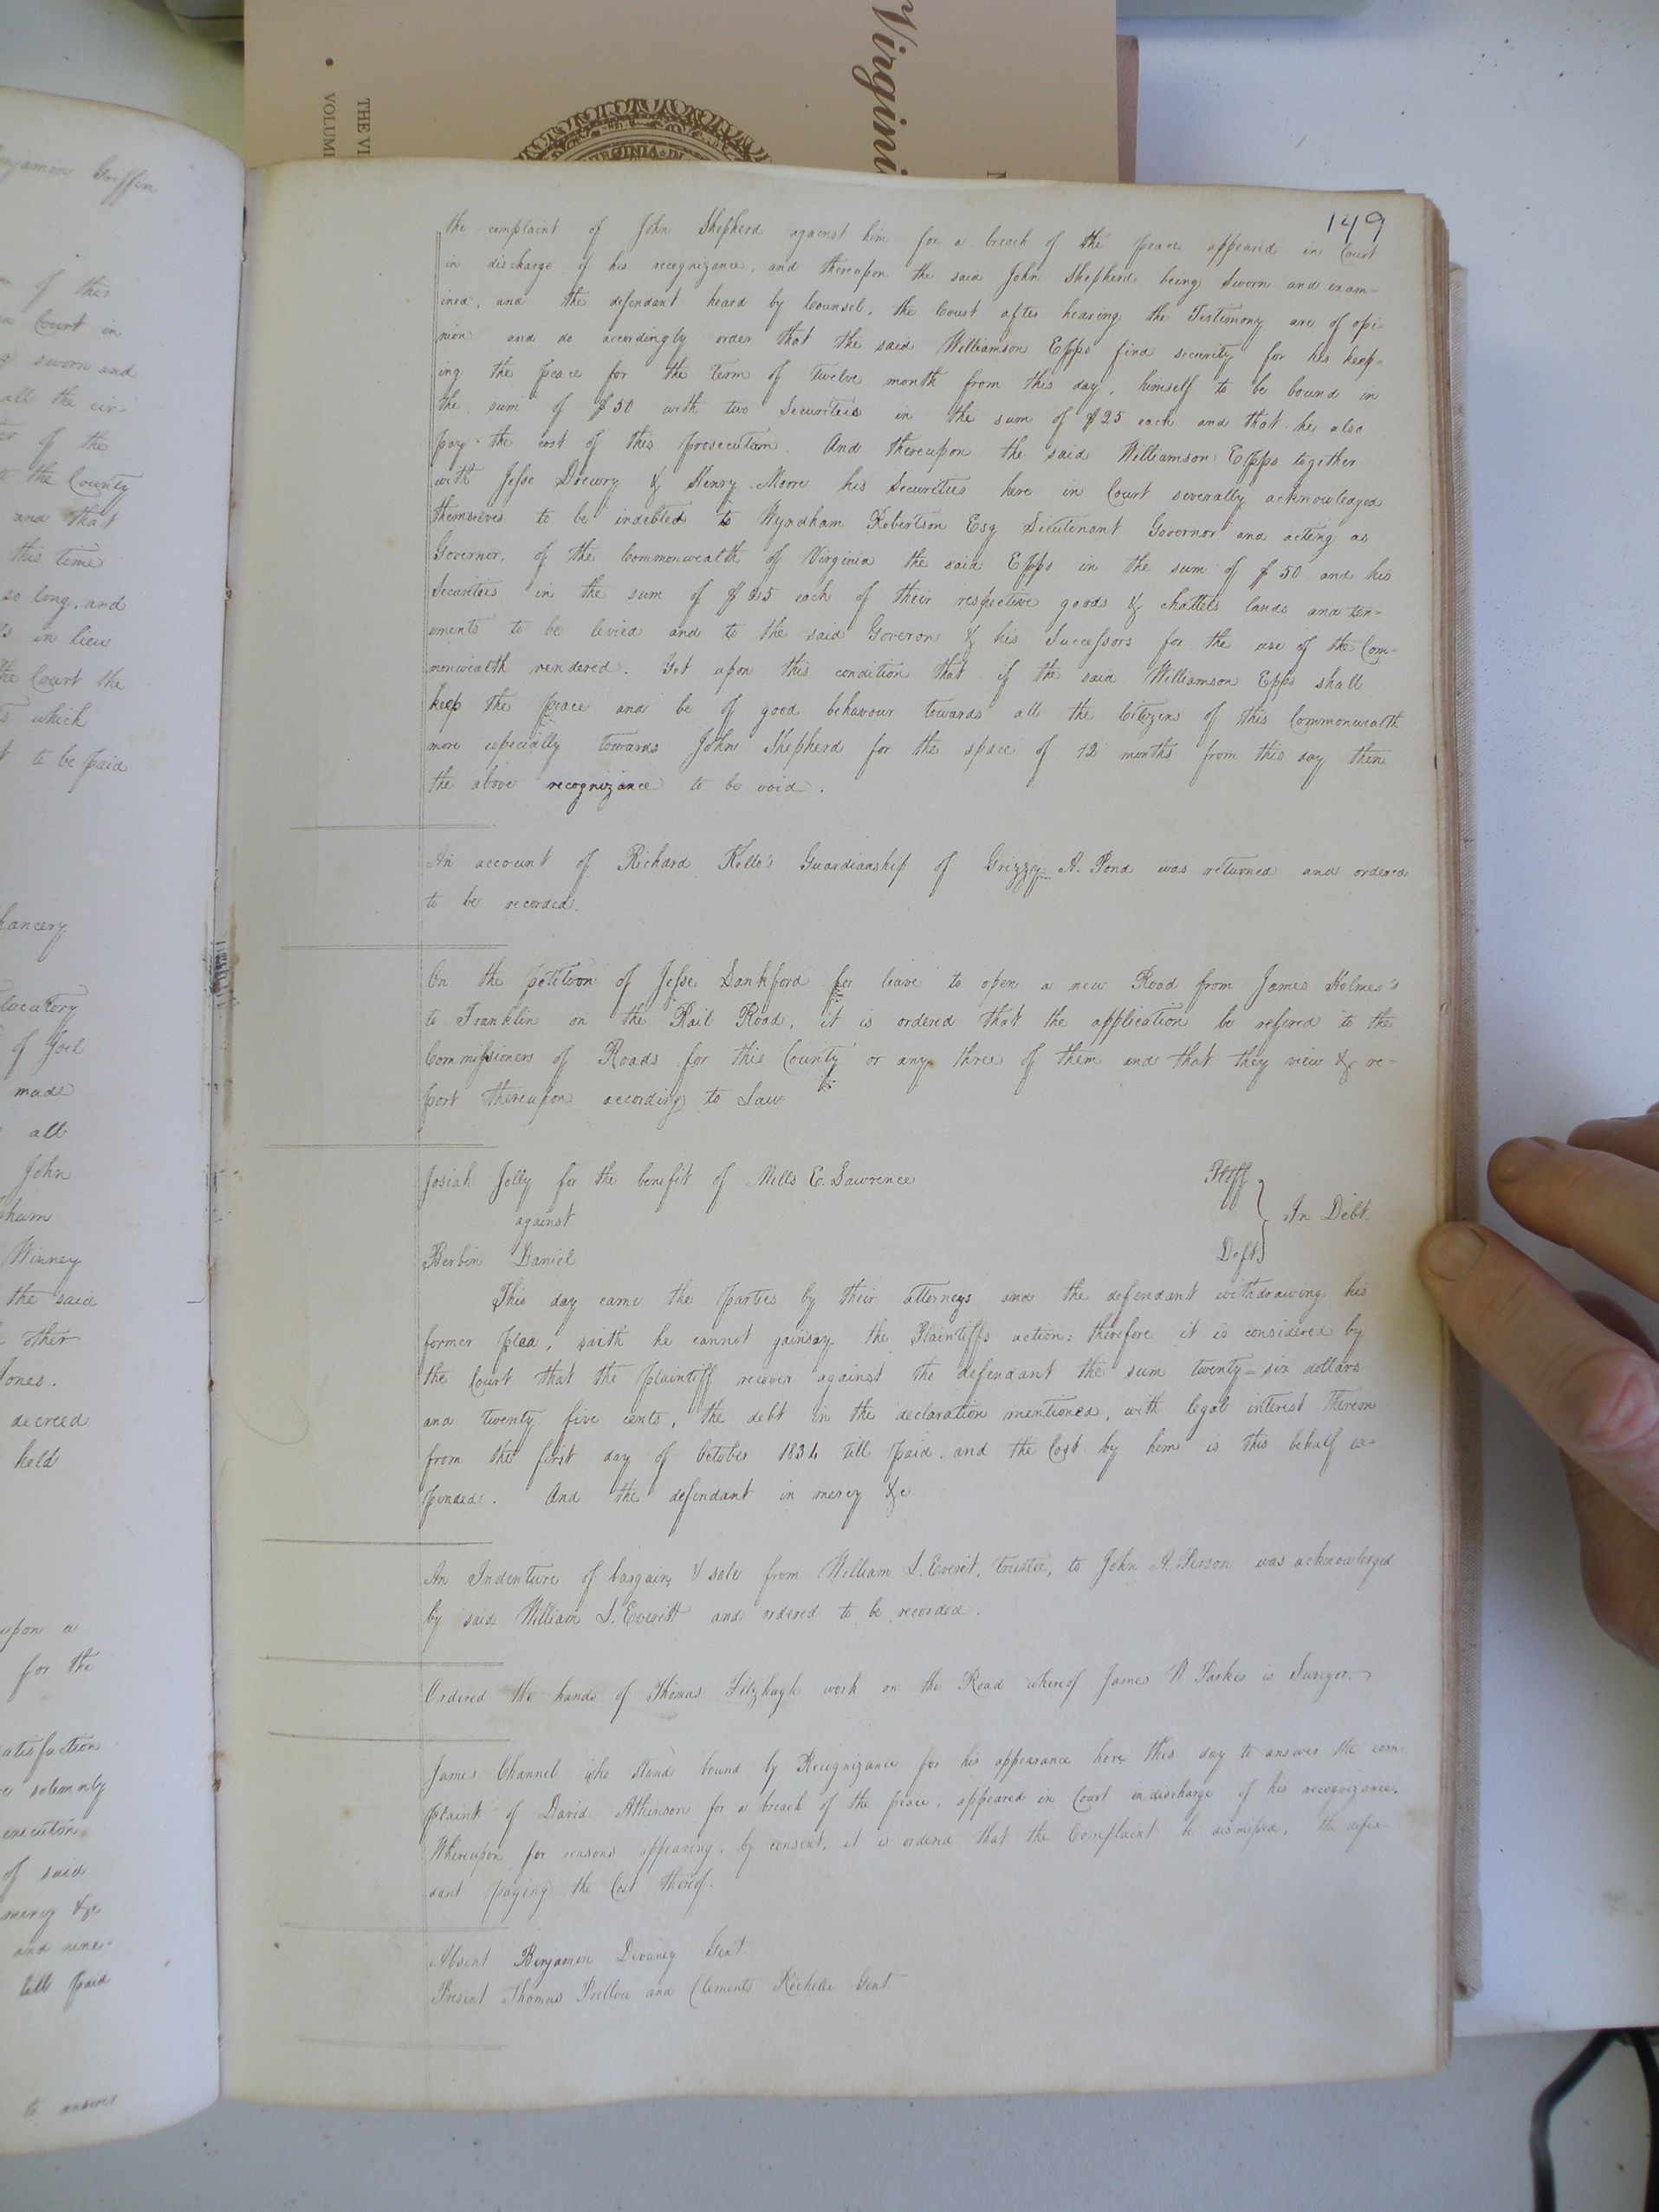 Virgini
THE VI
VOLUM
VIRGINIA
149
the complaint of John Shepherd against him for a breach of the peace appeared in Court
in discharge of his recognizance, and thereupon the said John Shepherd being Sworn and exam=
ined, and the defendant heard by Counsel, the Court after hearing the Testimony are of opi-
nion and do accordingly order that the said Williamson Epps find security for his keep=
ing the peace for the term of twelve month from this day, himself to be bound in
the sum of $50 with two Securities in the sum of $25 each and that he also
pay the cost of this prosecution. And thereupon the said Williamson Epps together
with Jesse Drewry & Henry Moore his Securities here in Court severally acknowledged
themselves to be indebted to Wyndham Robertson Esq Lieutenant Governor and acting as
Governor, of the Commonwealth of Virginia the said Epps in the sum of $50 and his
Securities in the sum of $25 each of their respective goods & chattels lands and ten=
ements to be levied and to the said Goveron & his Successors for the use of the Com=
monwealth rendered. Yet upon this condition that if the said Williamson Epps shall
keep the peace and be of good behavour towards all the Citizens of this Commonwealth
more especially towards John Shepherd for the space of 12 months from this day then
the above recognizance to be void.
An account of Richard Kello's Guardianship of Grizzy A. Pond was returned and ordered
to be recorded.
On the petition of Jesse Lankford for leave to open a new Road from James Holmes's
to Franklin on the Rail Road, it is ordered that the application be refered to the
Commissioners of Roads for this County or any three of them and that they view & re-
port thereupon according to Law
Josiah Jolly for the benefit of Mills E. Lawrence Pltff
against In Debt.
Berbin Daniel Deft.
This day came the parties by their attorneys and the defendant withdrawing his
former plea, saith he cannot gainsay the Plaintiffs action: therefore it is considered by
the Court that the plaintiff recover against the defendant the sum twenty=six dollars
and twenty five cents, the debt in the declaration mentioned, with legal interest thereon
from the first day of October 1834 till paid, and the Cost by him is this behalf ex=
pended. And the defendant in mercy &c
An Indenture of bargain & sale from William S. Everit, trustee, to John A. Person was acknowledged
by said William S. Everitt and ordered to be recorded.
Ordered the hands of Thomas Fitzhugh work on the Road whereof James W Parker is Surveyor.
James Channel who stand bound by Recognizance for his appearance here this day to answer the com
plaint of David Atkinson for a breach of the peace, appeared in Court in discharge of his recognizance.
Whereupon for reasons appearing, by consent, it is ordered that the Complaint be dismissed, the defen-
dant paying the Cost thereof.
Absent Benjamin Devaney Gent.
Present Thomas Pretlow and Clements Rochelle Gent.
enjamin Griffin
of this
Court in
sworn and
all the cir-
of the
the County
and that
this time
so long, and
in lieu
the Court the
which
to be paid
hancery
locutory
of Joel
made
all
John
ham
Winney
the said
other
Jones.
decreed
held
upon a
for the
atisfaction
solemnly
execution
of said
mercy &c
and nine-
till paid
to answer